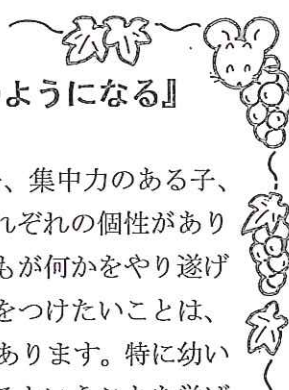 ようになる』
、集中力のある子、
れぞれの個性があり
もが何かをやり遂げ
をつけたいことは、
あります。特に幼い